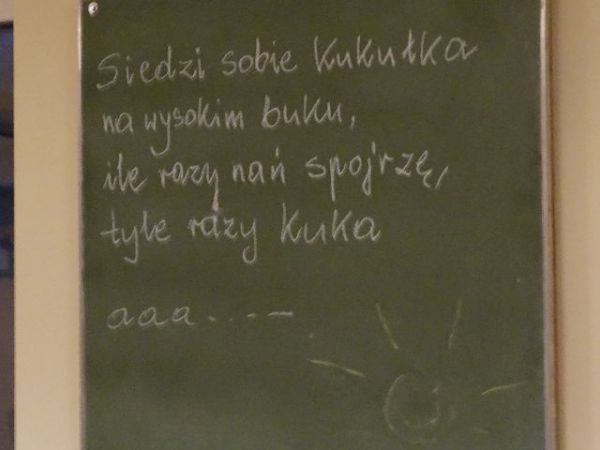 Siedzi sobie kukułka
na wysokim buku,
ile razy nań spojrzę,
tyle razy kuka
aaa....—